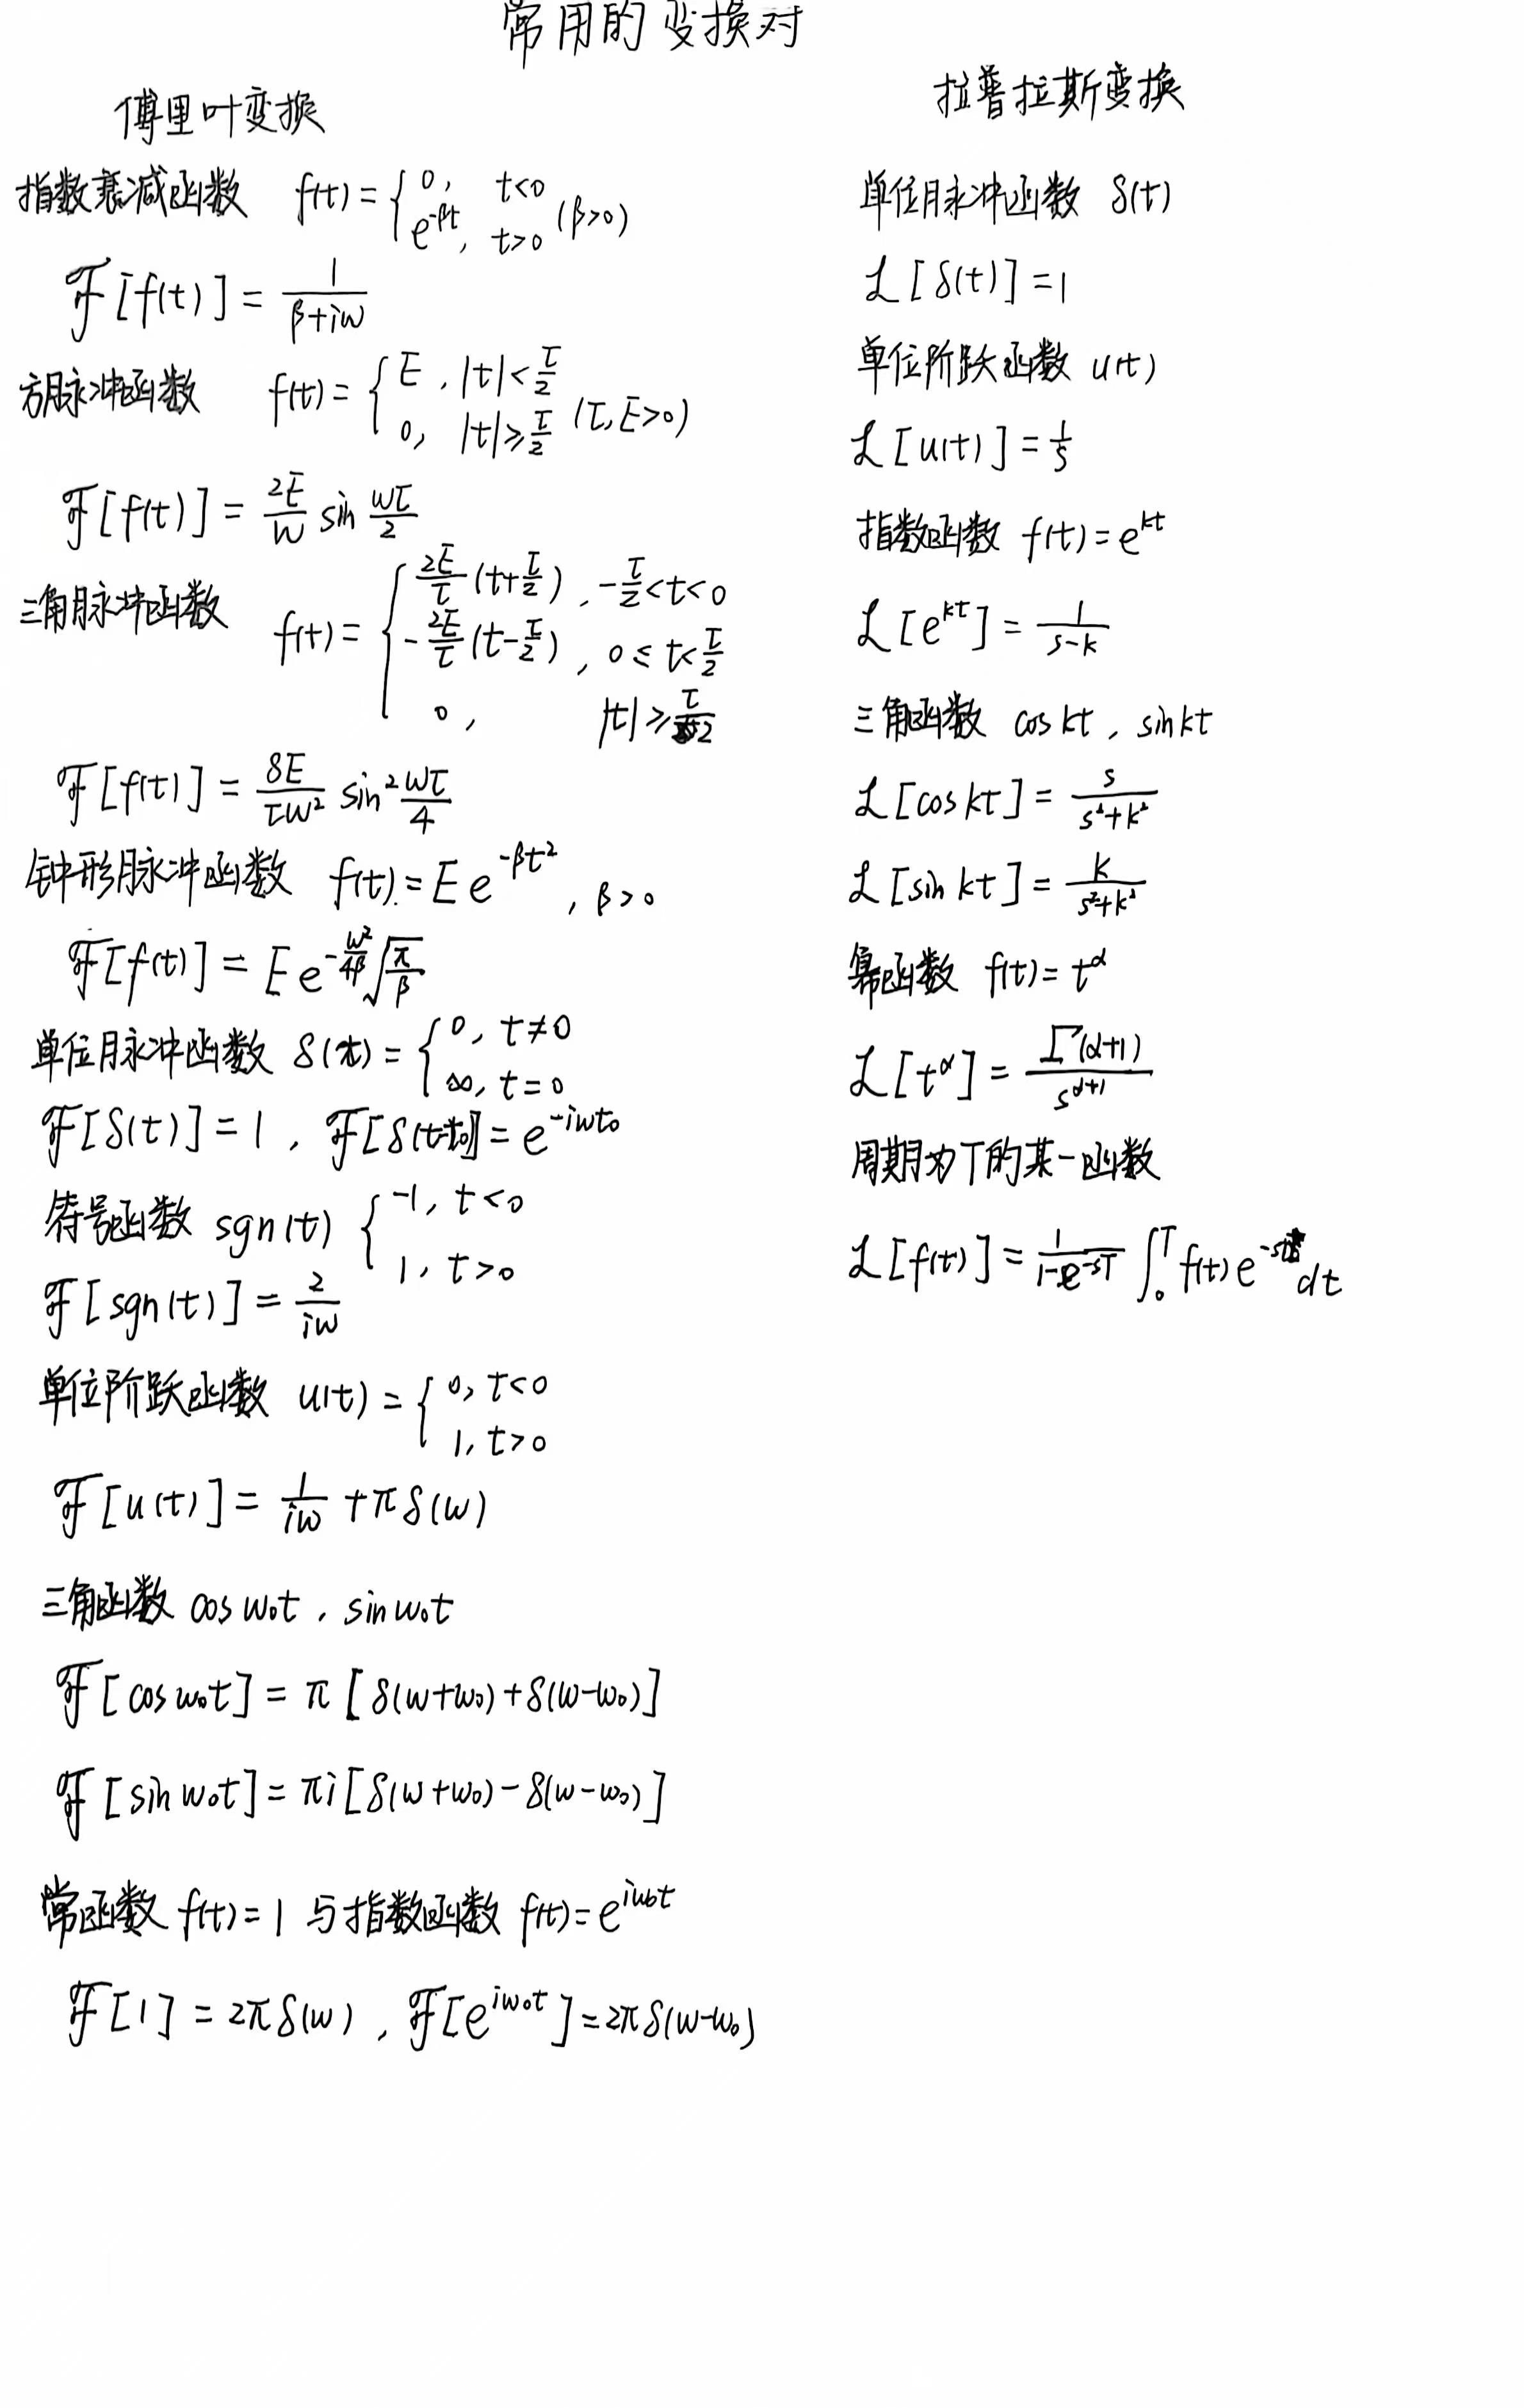 常用的变换对
傅里叶变换
指数衰减函数 f(t) = { 0, t<0
e^{-βt}, t>0 (β>0)
ℱ[f(t)] = \frac{1}{β+iω}
方脉冲函数 f(t) = { E, |t|<\frac{τ}{2}
0, |t|≥\frac{τ}{2} (τ,E>0)
ℱ[f(t)] = \frac{2E}{ω} sin \frac{ωτ}{2}
三角脉冲函数 f(t) = { \frac{2E}{τ}(t+\frac{τ}{2}), -\frac{τ}{2}<t<0
-\frac{2E}{τ}(t-\frac{τ}{2}), 0≤t<\frac{τ}{2}
0, |t|≥\frac{τ}{2}
ℱ[f(t)] = \frac{8E}{τω²} sin² \frac{ωτ}{4}
钟形脉冲函数 f(t) = E e^{-βt²}, β>0
ℱ[f(t)] = E e^{-\frac{ω²}{4β}} \sqrt{\frac{π}{β}}
单位脉冲函数 δ(t) = { 0, t≠0
∞, t=0
ℱ[δ(t)] = 1, ℱ[δ(t-t₀)] = e^{-iωt₀}
符号函数 sgn(t) { -1, t<0
1, t>0
ℱ[sgn(t)] = \frac{2}{iω}
单位阶跃函数 u(t) = { 0, t<0
1, t>0
ℱ[u(t)] = \frac{1}{iω} + πδ(ω)
三角函数 cos ω₀t, sin ω₀t
ℱ[cos ω₀t] = π[δ(ω+ω₀)+δ(ω-ω₀)]
ℱ[sin ω₀t] = πi[δ(ω+ω₀)-δ(ω-ω₀)]
常函数 f(t)=1 与指数函数 f(t)=e^{iω₀t}
ℱ[1] = 2πδ(ω), ℱ[e^{iω₀t}] = 2πδ(ω-ω₀)
拉普拉斯变换
单位脉冲函数 δ(t)
ℒ[δ(t)] = 1
单位阶跃函数 u(t)
ℒ[u(t)] = \frac{1}{s}
指数函数 f(t) = e^{kt}
ℒ[e^{kt}] = \frac{1}{s-k}
三角函数 cos kt, sin kt
ℒ[cos kt] = \frac{s}{s²+k²}
ℒ[sin kt] = \frac{k}{s²+k²}
幂函数 f(t) = t^α
ℒ[t^α] = \frac{Γ(α+1)}{s^{α+1}}
周期为T的某一函数
ℒ[f(t)] = \frac{1}{1-e^{-sT}} ∫₀^T f(t)e^{-st}dt